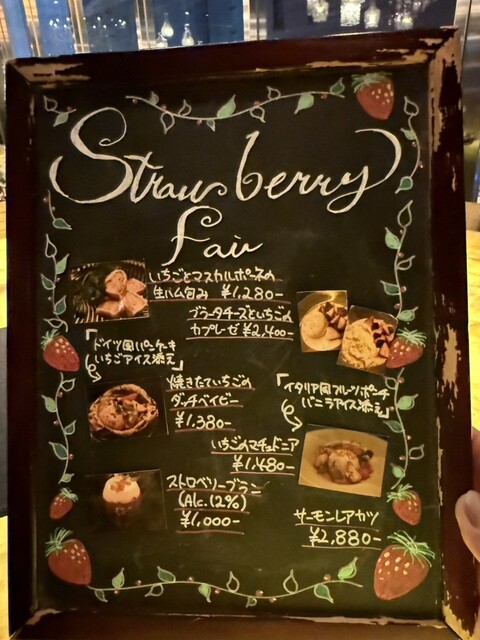 Strawberry
Fair
いちごとマスカルポーネの
生ハム包み ¥1,280-
ブラータチーズといちごの
カプレーゼ ¥2,400-
「ドイツ風パンケーキ
いちごアイス添え」
焼きたていちごの
ダッチベイビー
¥1,380-
「イタリア風フルーツポンチ
バニラアイス添え」
いちごのマチェドニア
¥1,480-
ストロベリーブラン
(Alc.12%)
¥1,000-
サーモンレアカツ
¥2,880-